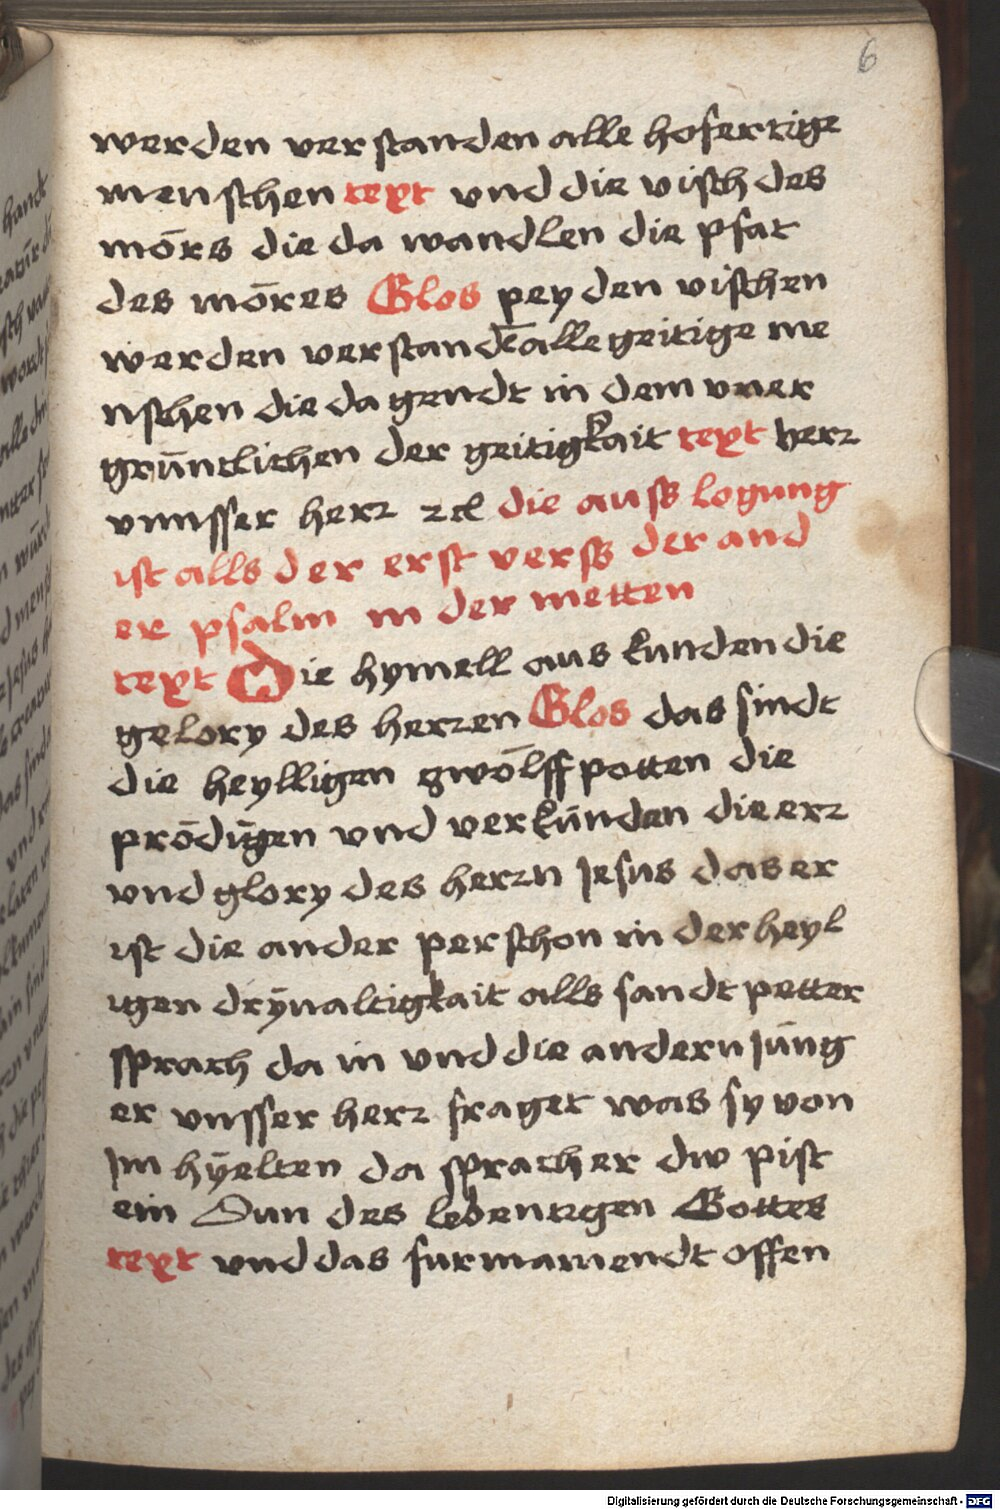 6
werden verstanden alle hofertige
menschen text vnd die visch des
mörs die da wandlen die pfat
des möres Glos pey den vischen
werden verstandē alle geitige me
nschen die da gendt in dem vner
grüntlichen der geitigkait text herz
vnnsser herz zcl die aussß logung
ist alls der erst verss der and
er psalm in der metten
text Die hymell aus kunden die
gelory des herzen Glos das sindt
die heylligen zwölff potten die
prödigen vnd verkünden die erz
vnd glory des herzn Jesus das er
ist die ander perschon in der heyl
igen drÿualtigkait alls sandt petter
sprach da in vnd die andern Jüng
er vnsser herz fraget was sy von
Im hÿelten da sprach er dw pist
ein Sun des lebentigen Gottes
text vnd das furmamendt offen
Digitalisierung gefördert durch die Deutsche Forschungsgemeinschaft - DFG